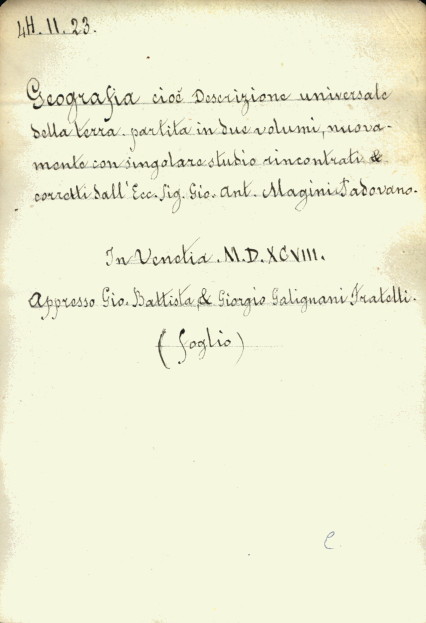 4H. II. 23.
Geografia cioè Descrizione universale
della terra. partita in due volumi, nuova-
mente con singolare studio rincontrati &
corretti dall'Ecc. Sig. Gio. Ant. Magini Padovano.
In Venetia. M.D.XCVIII.
Appresso Gio. Battista, & Giorgio Galignani Fratelli.
(foglio)